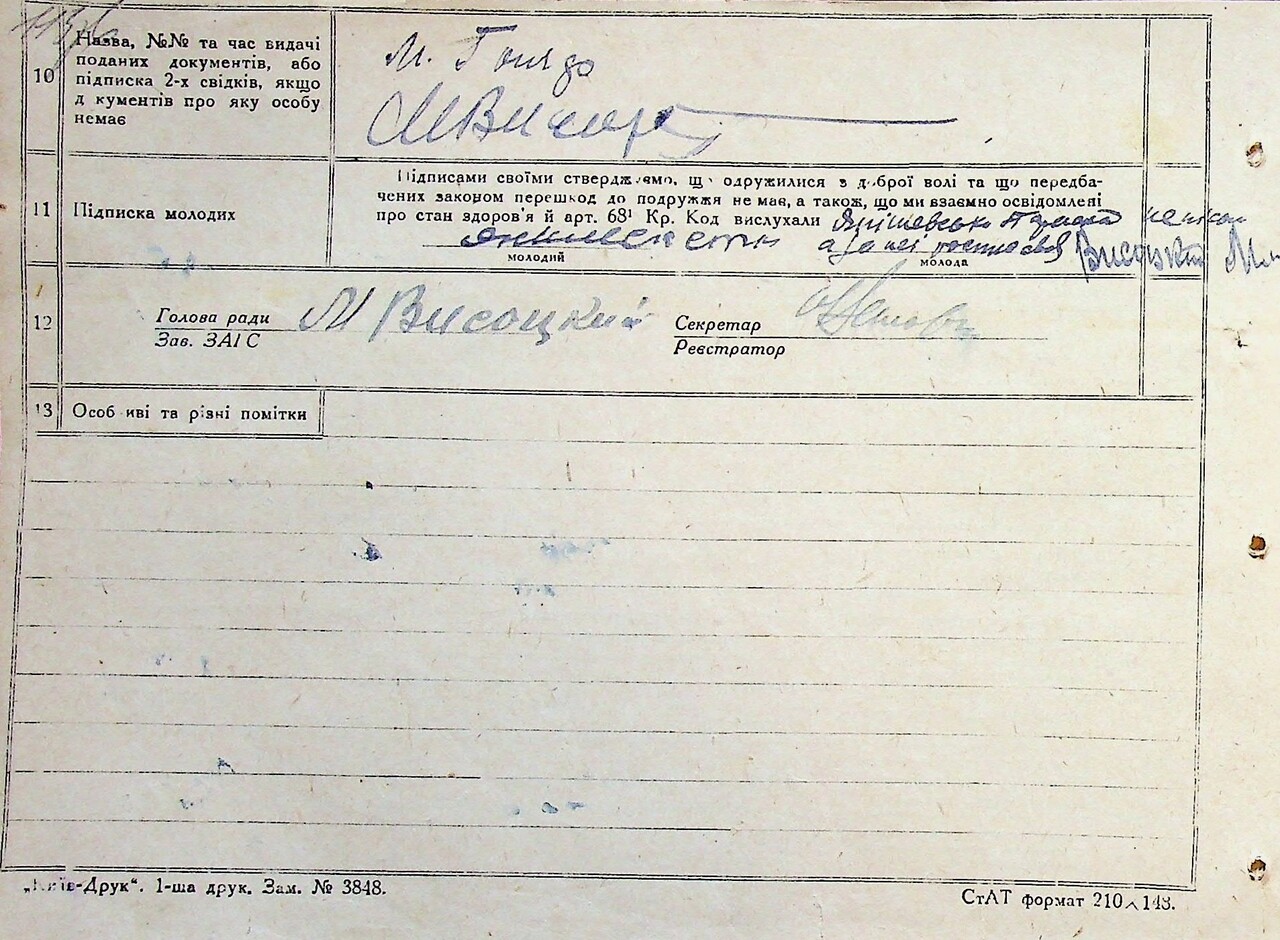 10
Назва, №№ та час видачі
поданих документів, або
підписка 2-х свідків, якщо
д кументів про яку особу
немає
М.
11
Підписка молодих
Підписами своїми стверджуємо, що одружилися з доброї волі та що передба-
чених законом перешкод до подружжя не має, а також, що ми взаємно освідомлені
про стан здоров'я й арт. 68¹ Кр. Код вислухали
молодий
молода
12
Голова ради М Висоцкий Секретар
Зав. ЗАГС Реєстратор
13 Особ иві та різні помітки
„Київ-Друк“. 1-ша друк. Зам. № 3848.
СтАТ формат 210×148.